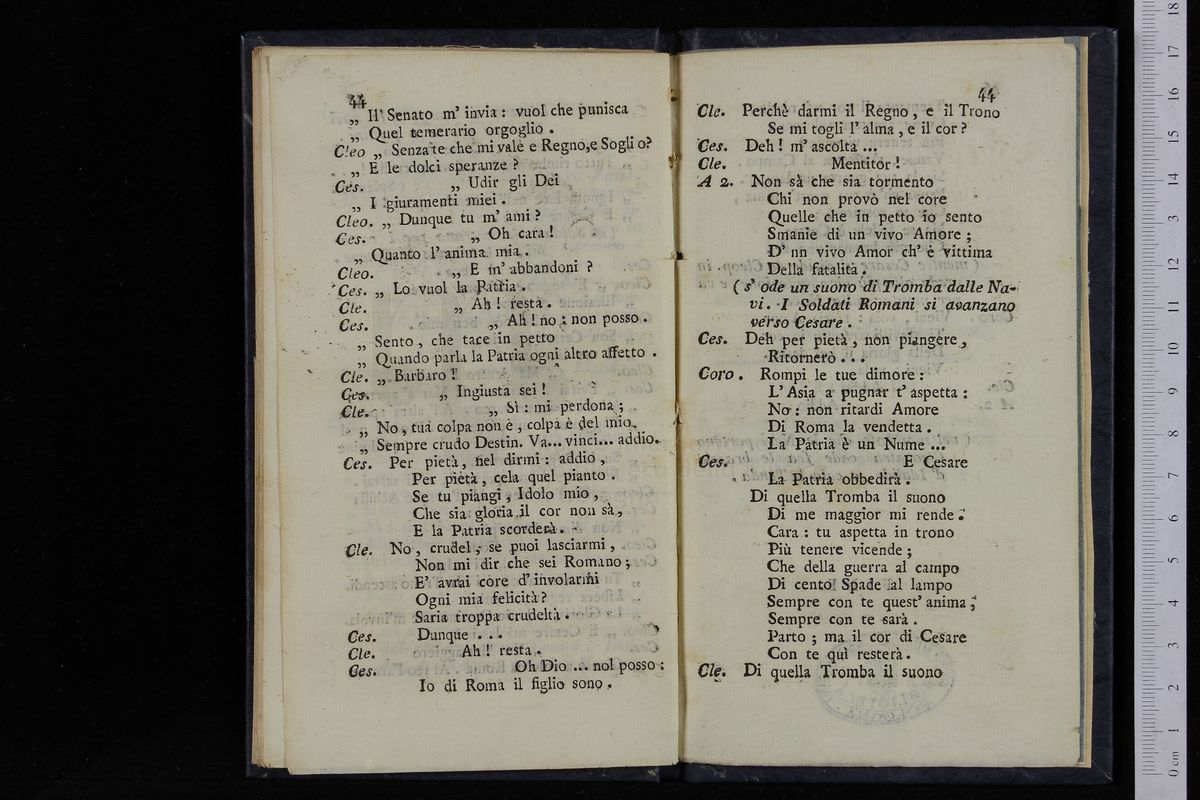 44
„ Il Senato m' invia : vuol che punisca
„ Quel temerario orgoglio .
Cleo „ Senza te che mi vale e Regno,e Soglio?
„ E le dolci speranze ?
Ces. „ Udir gli Dei
„ I giuramenti miei .
Cleo. „ Dunque tu m' ami ?
Ces. „ Oh cara !
„ Quanto l' anima mia .
Cleo. „ E m' abbandoni ?
Ces. „ Lo vuol la Patria .
Cle. „ Ah ! resta .
Ces. „ Ah ! no : non posso .
„ Sento , che tace in petto
„ Quando parla la Patria ogni altro affetto .
Cle. „ Barbaro !
Ces. „ Ingiusta sei !
Cle. „ Sì : mi perdona ;
„ No , tua colpa non è , colpa è del mio
„ Sempre crudo Destin. Va... vinci... addio.
Ces. Per pietà, nel dirmi : addio ,
Per pietà , cela quel pianto .
Se tu piangi , Idolo mio ,
Che sia gloria il cor non sà,
E la Patria scorderà .
Cle. No , crudel , se puoi lasciarmi ,
Non mi dir che sei Romano ;
E' avrai core d' involarmi
Ogni mia felicità ?
Saria troppa crudeltà .
Ces. Dunque . . .
Cle. Ah ! resta .
Ces. Oh Dio ... nol posso :
Io di Roma il figlio sono .
44
Cle. Perchè darmi il Regno , e il Trono
Se mi togli l' alma , e il cor ?
Ces. Deh ! m' ascolta ...
Cle. Mentitor !
A 2. Non sà che sia tormento
Chi non provò nel core
Quelle che in petto io sento
Smanie di un vivo Amore ;
D' un vivo Amor ch' è vittima
Della fatalità .
( s' ode un suono di Tromba dalle Na-
vi. I Soldati Romani si avanzano
verso Cesare .
Ces. Deh per pietà , non piangere ,
Ritornerò . . .
Coro . Rompi le tue dimore :
L' Asia a pugnar t' aspetta :
No : non ritardi Amore
Di Roma la vendetta .
La Patria è un Nume ...
Ces. E Cesare
La Patria obbedirà .
Di quella Tromba il suono
Di me maggior mi rende .
Cara : tu aspetta in trono
Più tenere vicende ;
Che della guerra al campo
Di cento Spade al lampo
Sempre con te quest' anima ;
Sempre con te sarà .
Parto ; ma il cor di Cesare
Con te quì resterà .
Cle. Di quella Tromba il suono
0 cm 1 2 3 4 5 6 7 8 9 10 11 12 13 14 15 16 17 18